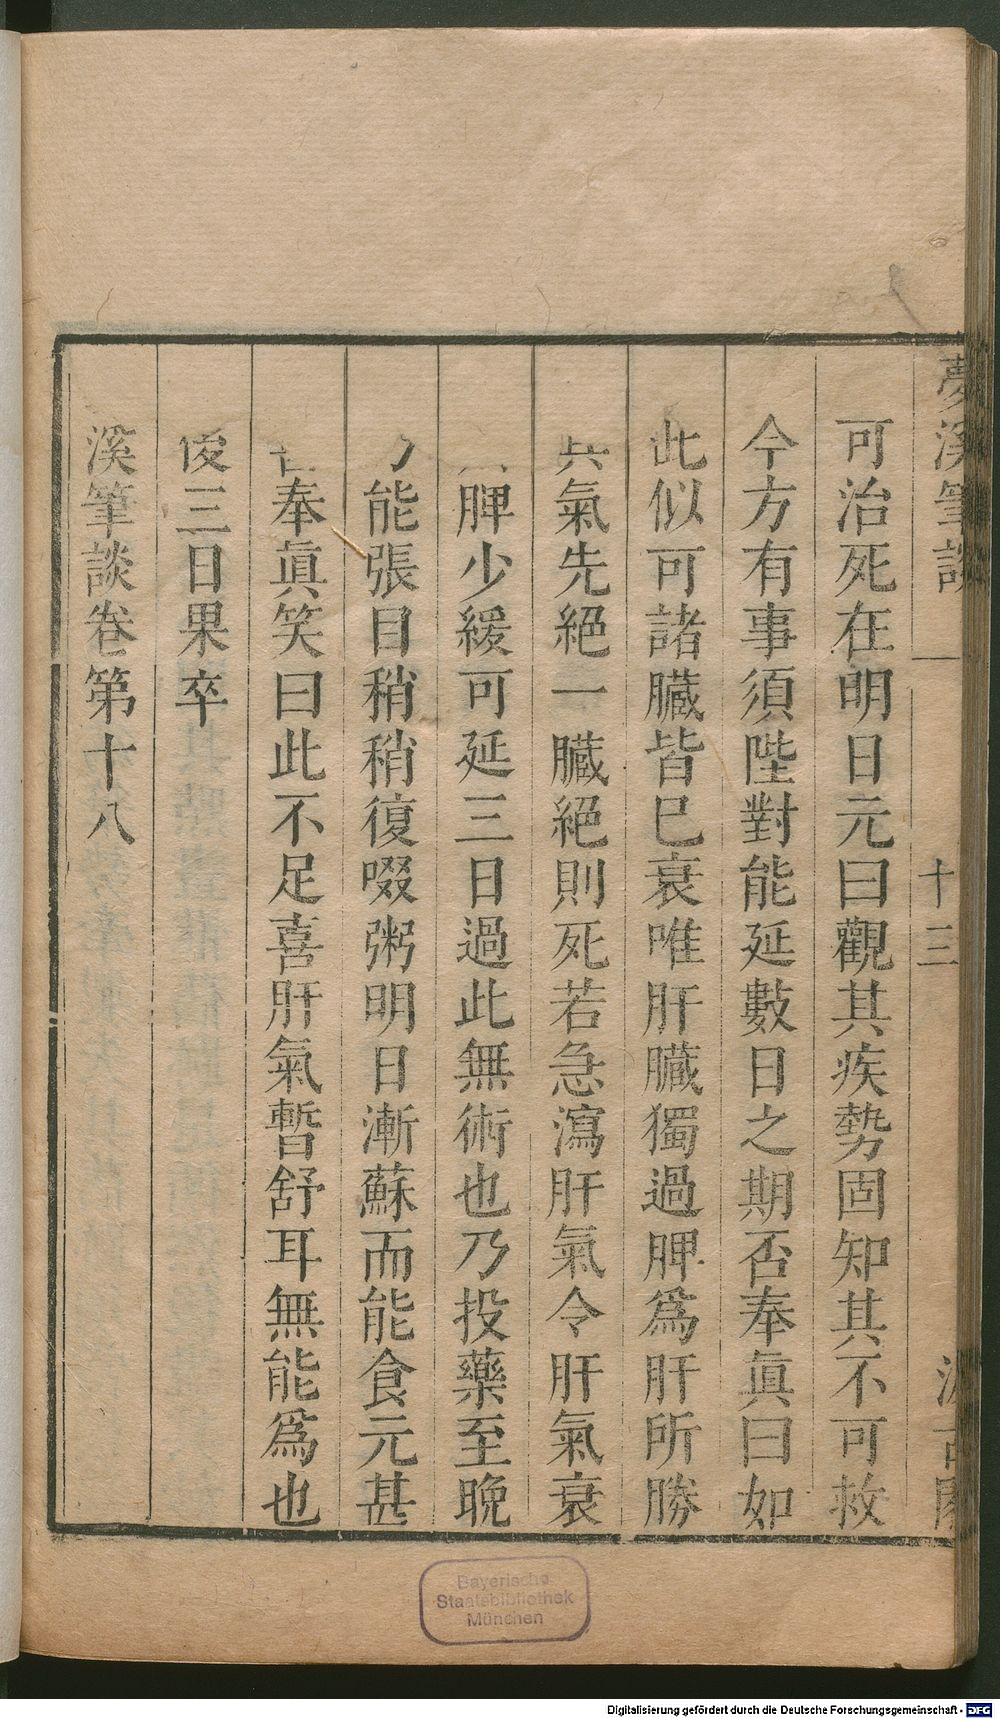 夢溪筆談 十三 汲古閣
可治死在明日元曰觀其疾勢固知其不可救
今方有事須陛對能延數日之期否奉眞曰如
此似可諸臟皆巳衰唯肝臟獨過脾爲肝所勝
其氣先絕一臟絕則死若急瀉肝氣令肝氣衰
則脾少緩可延三日過此無術也乃投藥至晩
乃能張目稍稍復啜粥明日漸蘇而能食元甚
喜奉眞笑曰此不足喜肝氣暫舒耳無能爲也
後三日果卒
溪筆談卷第十八
Bayerische
Staatsbibliothek
München
Digitalisierung gefördert durch die Deutsche Forschungsgemeinschaft - DFG